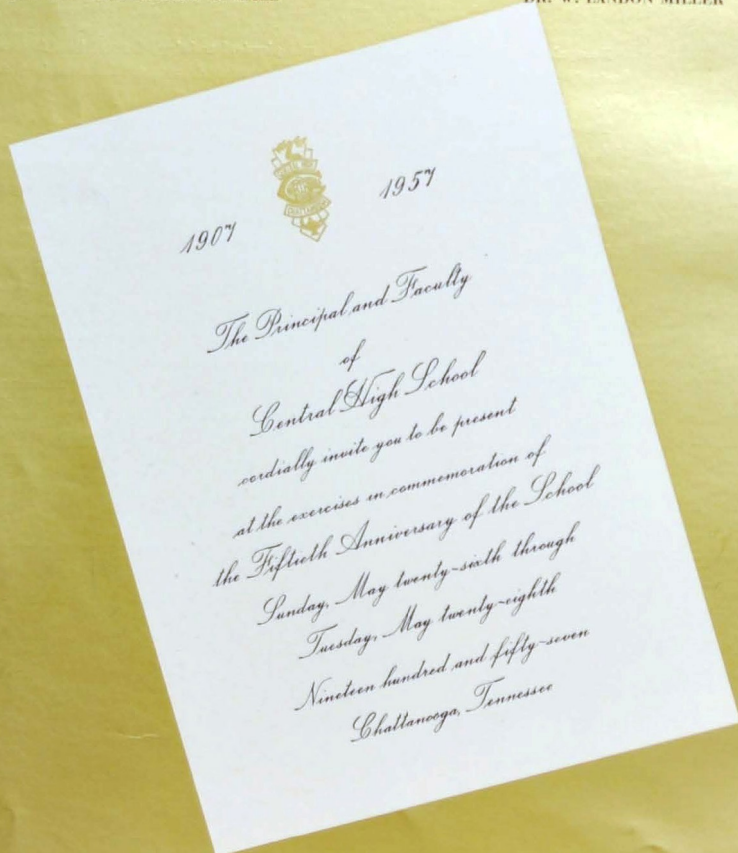 DR. W. LANDON MILLER
1907 1957
The Principal and Faculty
of
Central High School
cordially invite you to be present
at the exercises in commemoration of
the Fiftieth Anniversary of the School
Sunday, May twenty-sixth through
Tuesday, May twenty-eighth
Nineteen hundred and fifty-seven
Chattanooga, Tennessee